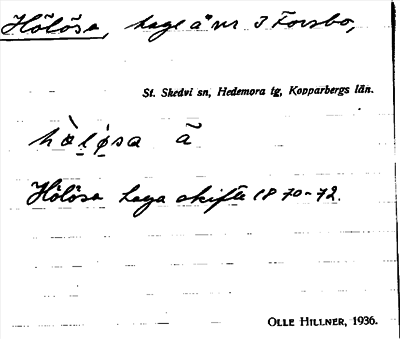 Hölösa, hage å nr 3 Forsbo,
St. Skedvi sn, Hedemora tg, Kopparbergs län.
Hölösa haga skifte 1870-72.
OLLE HILLNER, 1936.